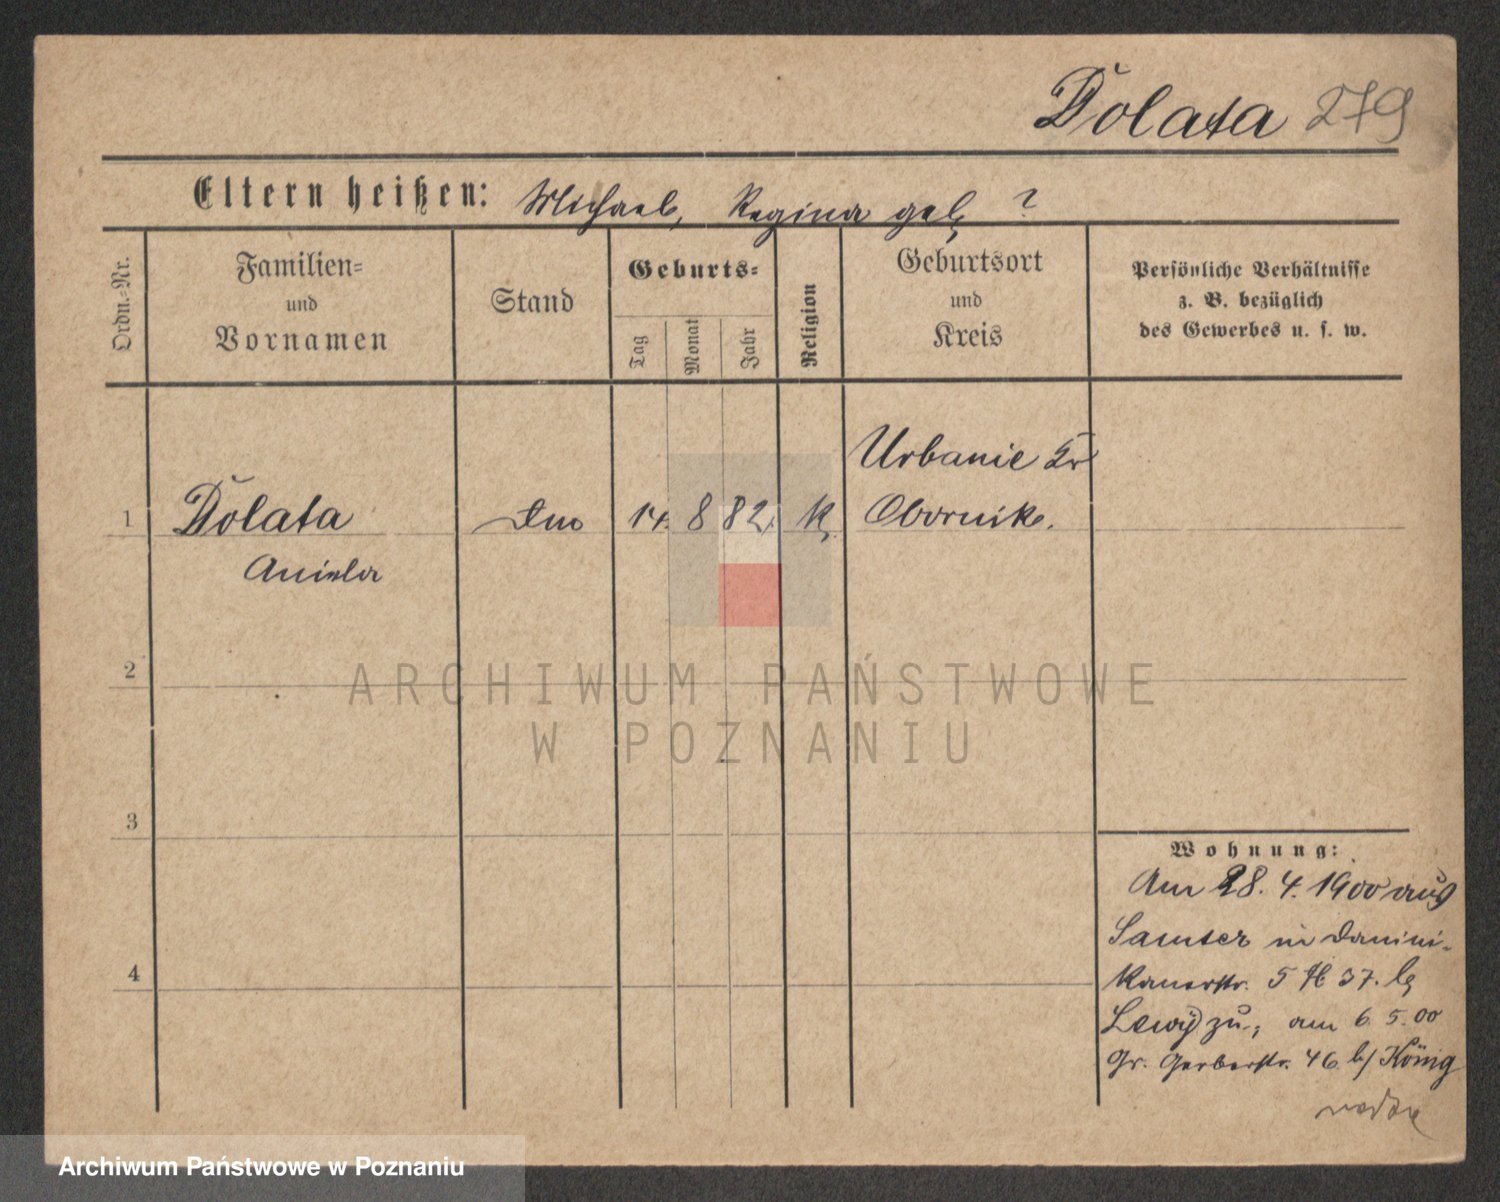 Dolata 279
Eltern heißen: Michael, Regina geb. ?
Ordn.-Nr.
Familien-
und
Vornamen
Stand
Geburts-
Tag
Monat
Jahr
Religion
Geburtsort
und
Kreis
Persönliche Verhältnisse
z. B. bezüglich
des Gewerbes u. s. w.
Urbanie Kr
1 Dolata 14. 8 82. K. Obornik.
Aniela
2
ARCHIWUM PAŃSTWOWE
W POZNANIU
3
Wohnung:
Am 28. 4. 1900 aus
Samter in Domini-
4
kanerstr. 5 37. b.
Lewy zu, am 6. 5. 00
Gr. Gerberstr. 46 b/ König
Archiwum Państwowe w Poznaniu